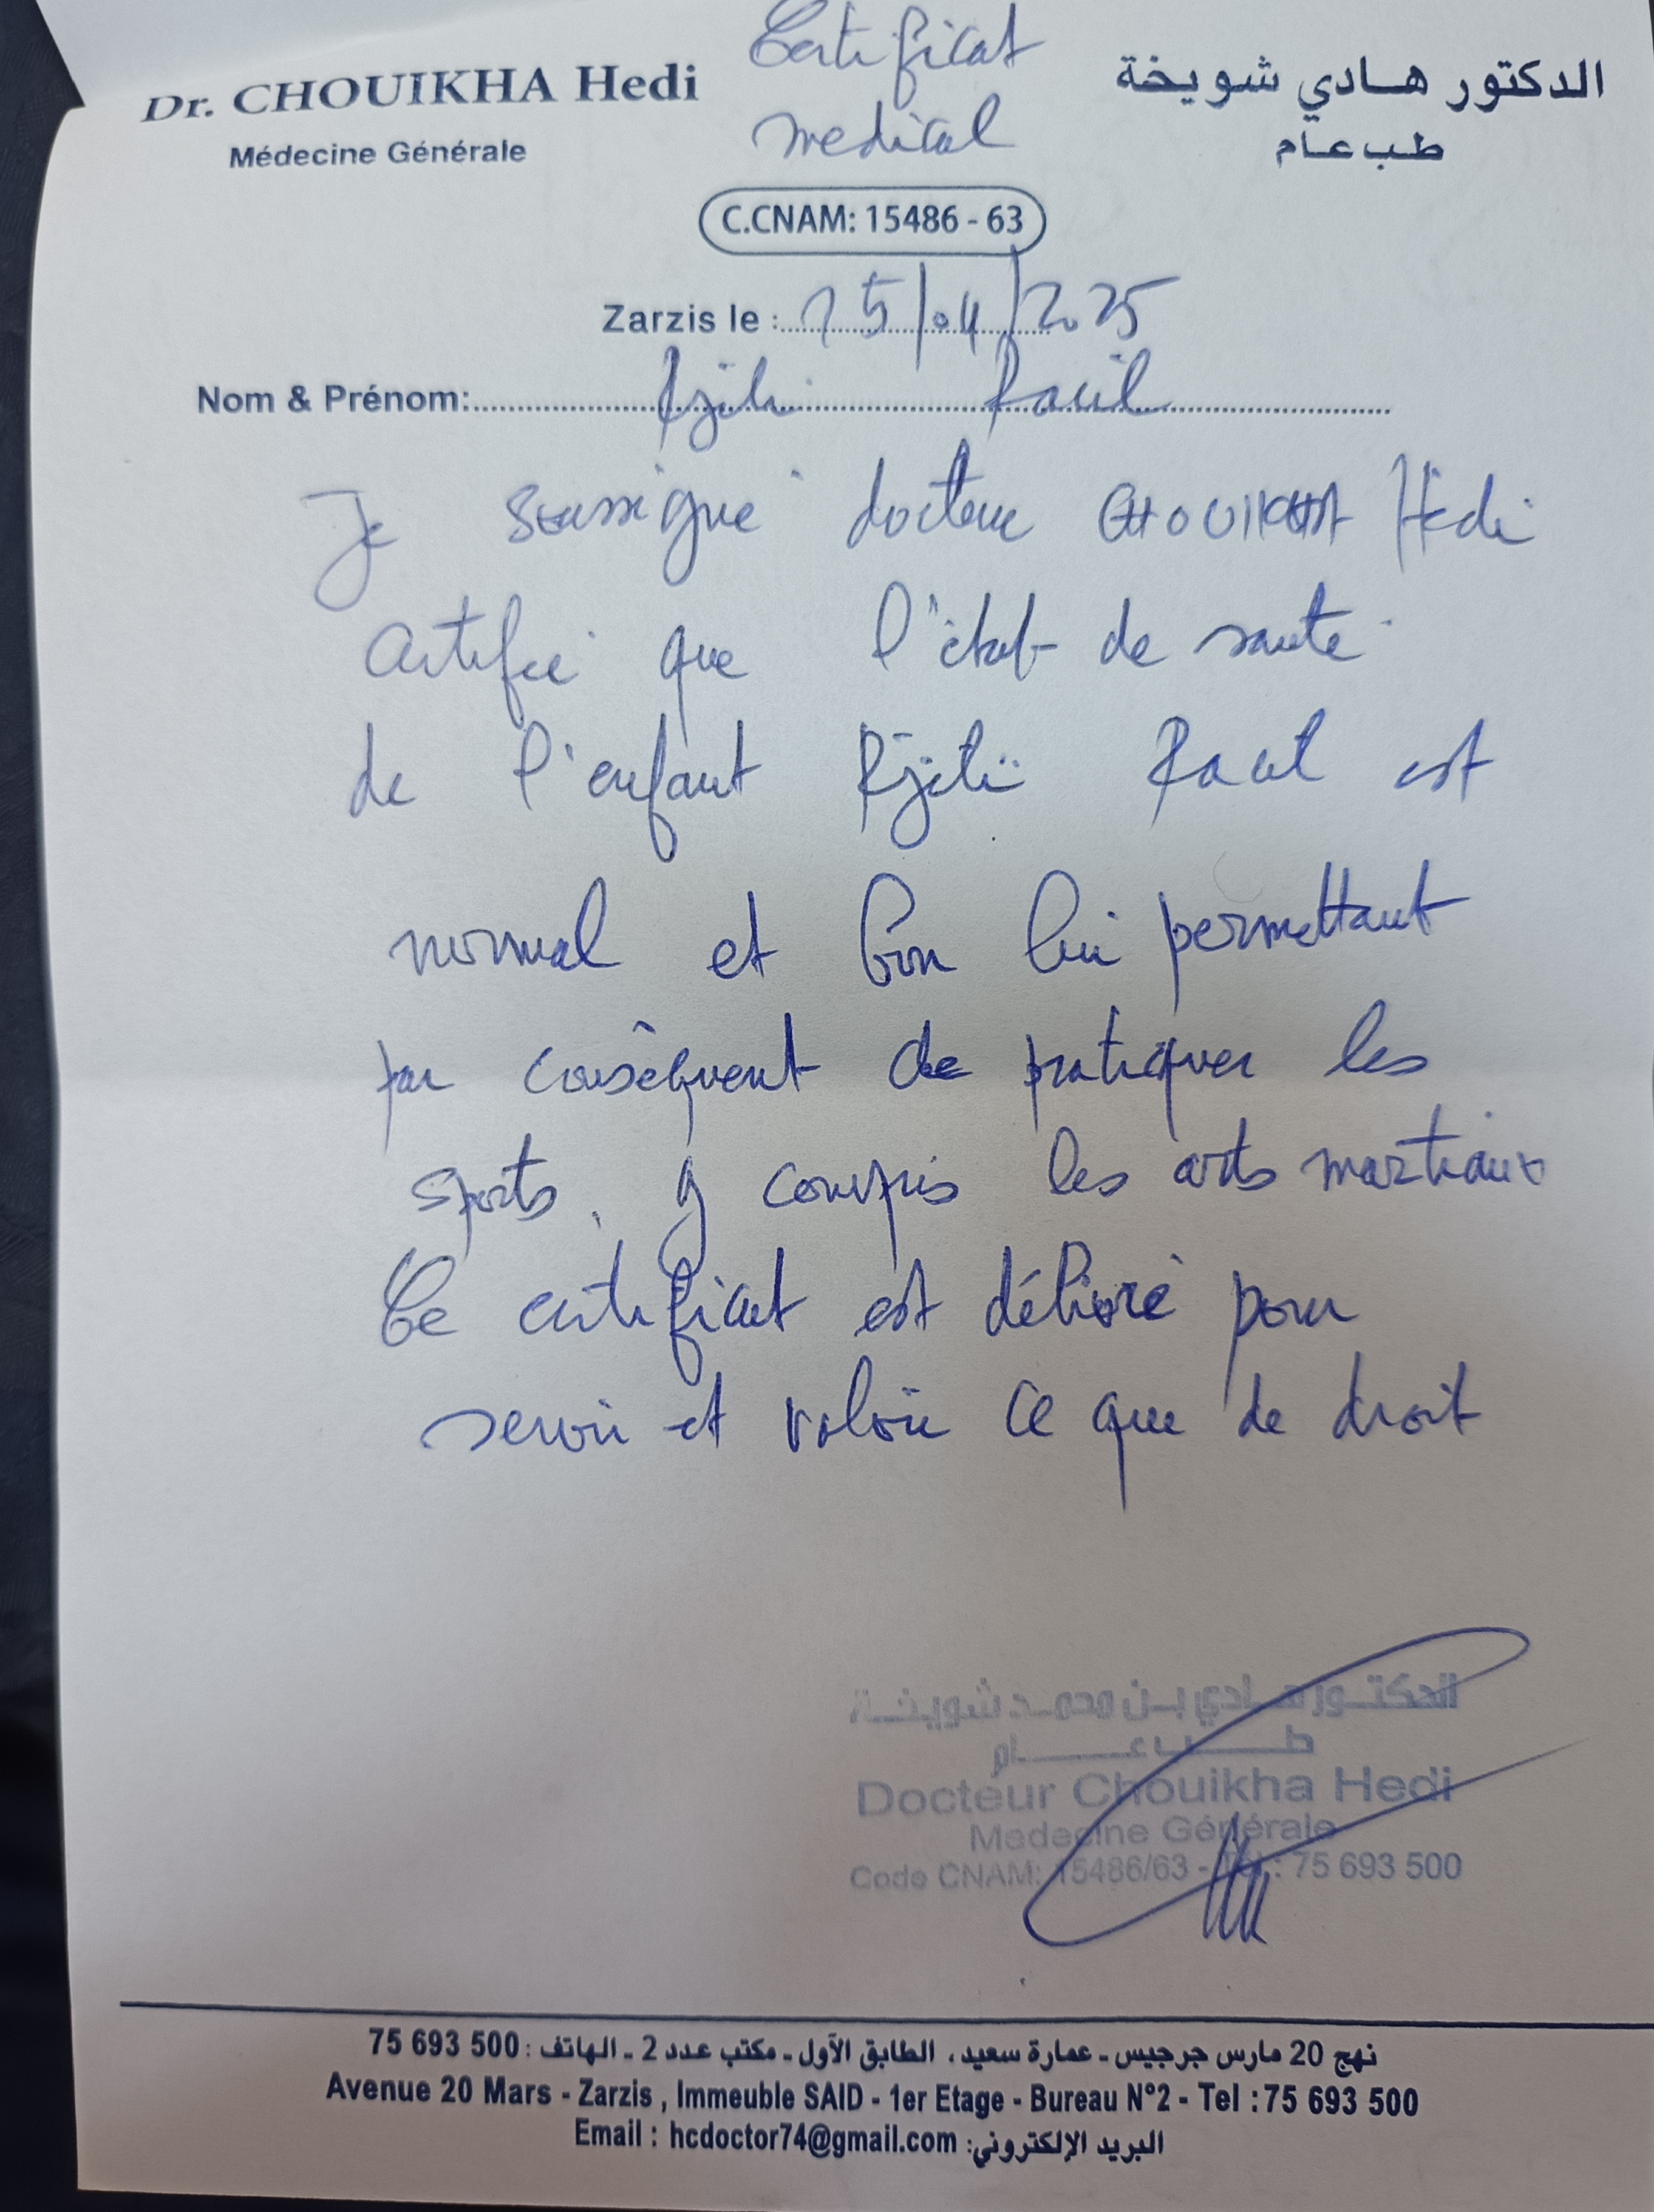 Certificat
medical
Dr. CHOUIKHA Hedi
Médecine Générale
الدكتور هادي شويخة
طب عام
C.CNAM: 15486 - 63
Zarzis le : 15/04/2025
Nom & Prénom:
Je soussigné docteur CHOUIKHA Hedi
certifie que l'état de santé
de l'enfant est
normal et bon lui permettant
par conséquent de pratiquer les
sports, y compris les arts martiaux
Ce certificat est délivré pour
servir et valoir ce que de droit
الدكتور هادي بن محمد شويخة
طب عام
Docteur Chouikha Hedi
Medecine Générale
Code CNAM: 15486/63 - Tél.: 75 693 500
نهج 20 مارس جرجيس - عمارة سعيد، الطابق الأول - مكتب عدد 2 - الهاتف : 75 693 500
Avenue 20 Mars - Zarzis , Immeuble SAID - 1er Etage - Bureau N°2 - Tel :75 693 500
Email : hcdoctor74@gmail.com :البريد الإلكتروني